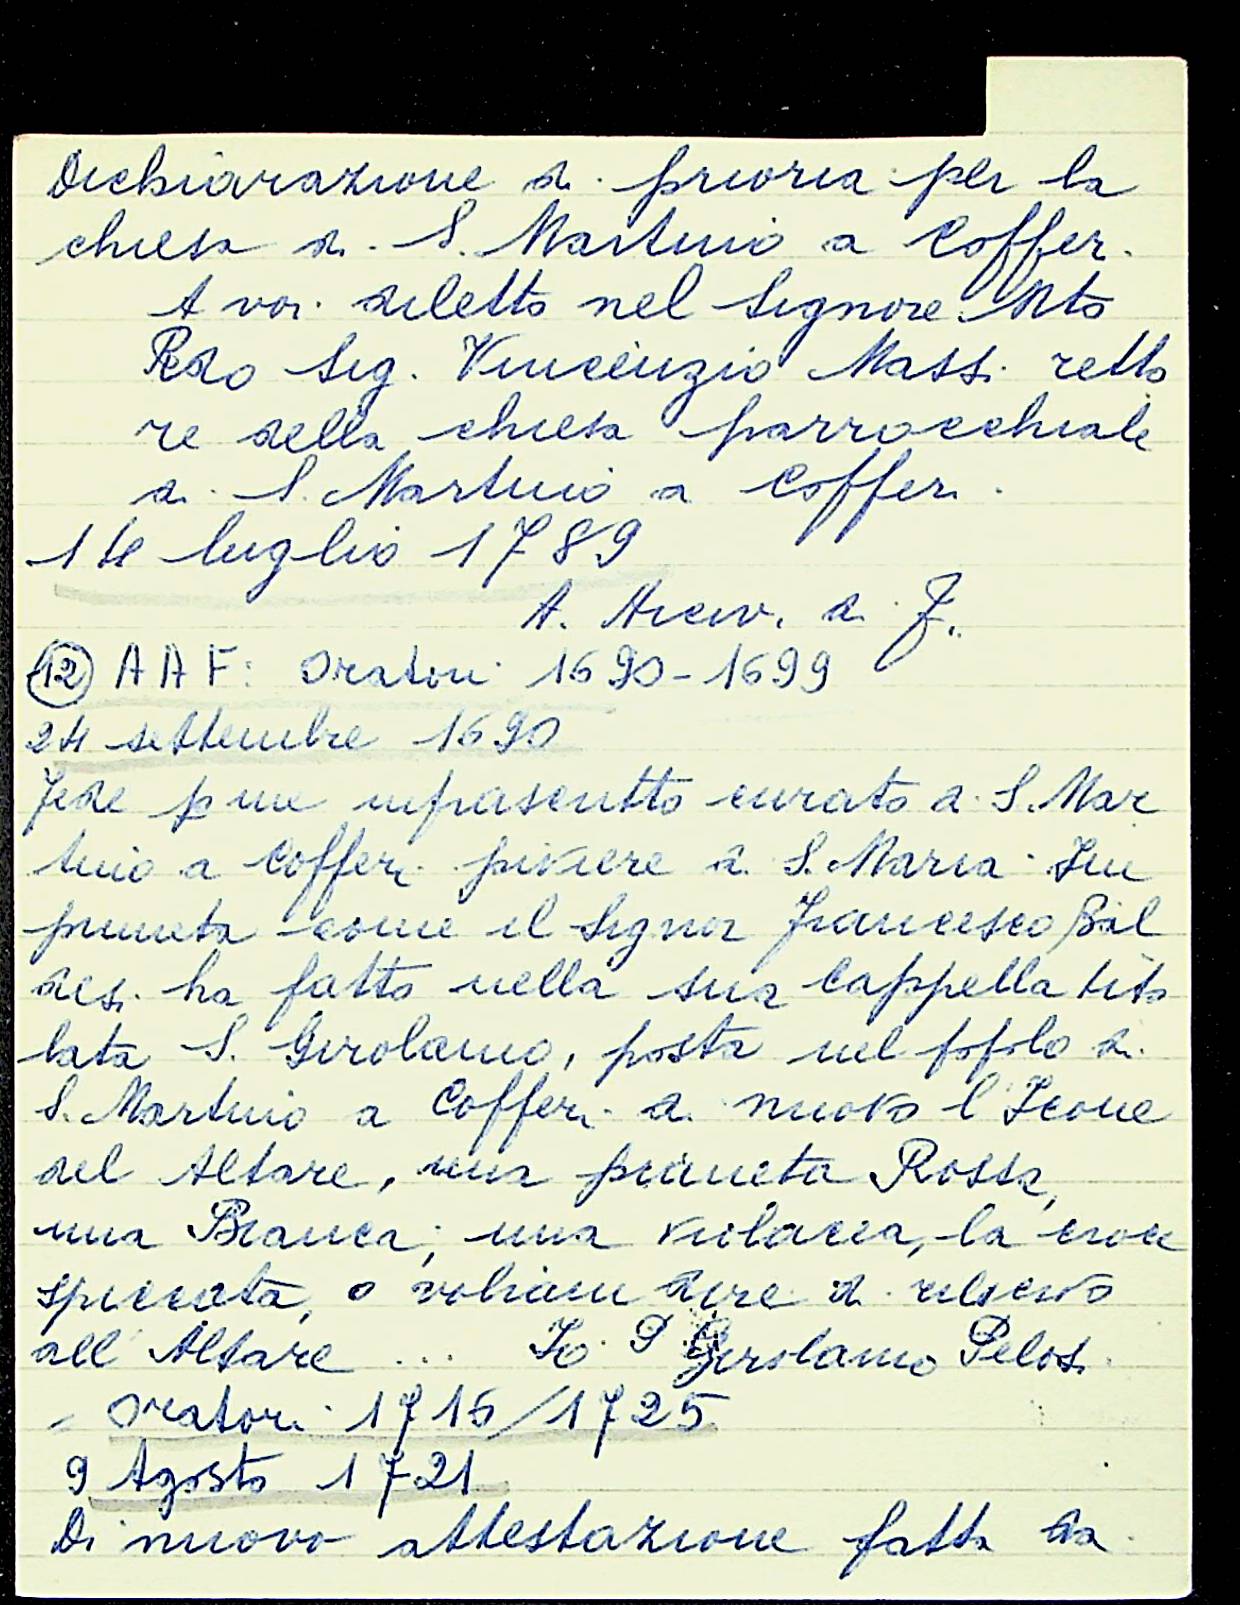 Dichiarazione di prioria per la
chiesa di S. Martino a Cofferi
A voi diletto nel Signore Mto
Redo Sig. Vincenzio Massi retto
re della chiesa parrocchiale
di S. Martino a Cofferi
14 luglio 1789
A. Arciv. di F.
12 AAF: Oratori 1690-1699
24 settembre 1690
Fede p me infrascritto curato di S. Mar
tino a Cofferi piviere di S. Maria Im
pruneta come il Signor Francesco Bal
desi ha fatto nella sua Cappella tito
lata S. Girolamo, posta nel popolo di
S. Martino a Cofferi di nuovo l'Icone
del Altare, una pianeta Rossa,
una Bianca, una violacea, la croce
spiccata, o voliam dire di rilievo
all'Altare ... Io P Girolamo Pelosi
= Oratori 1716/1725
9 Agosto 1721
Di nuovo attestazione fatta da